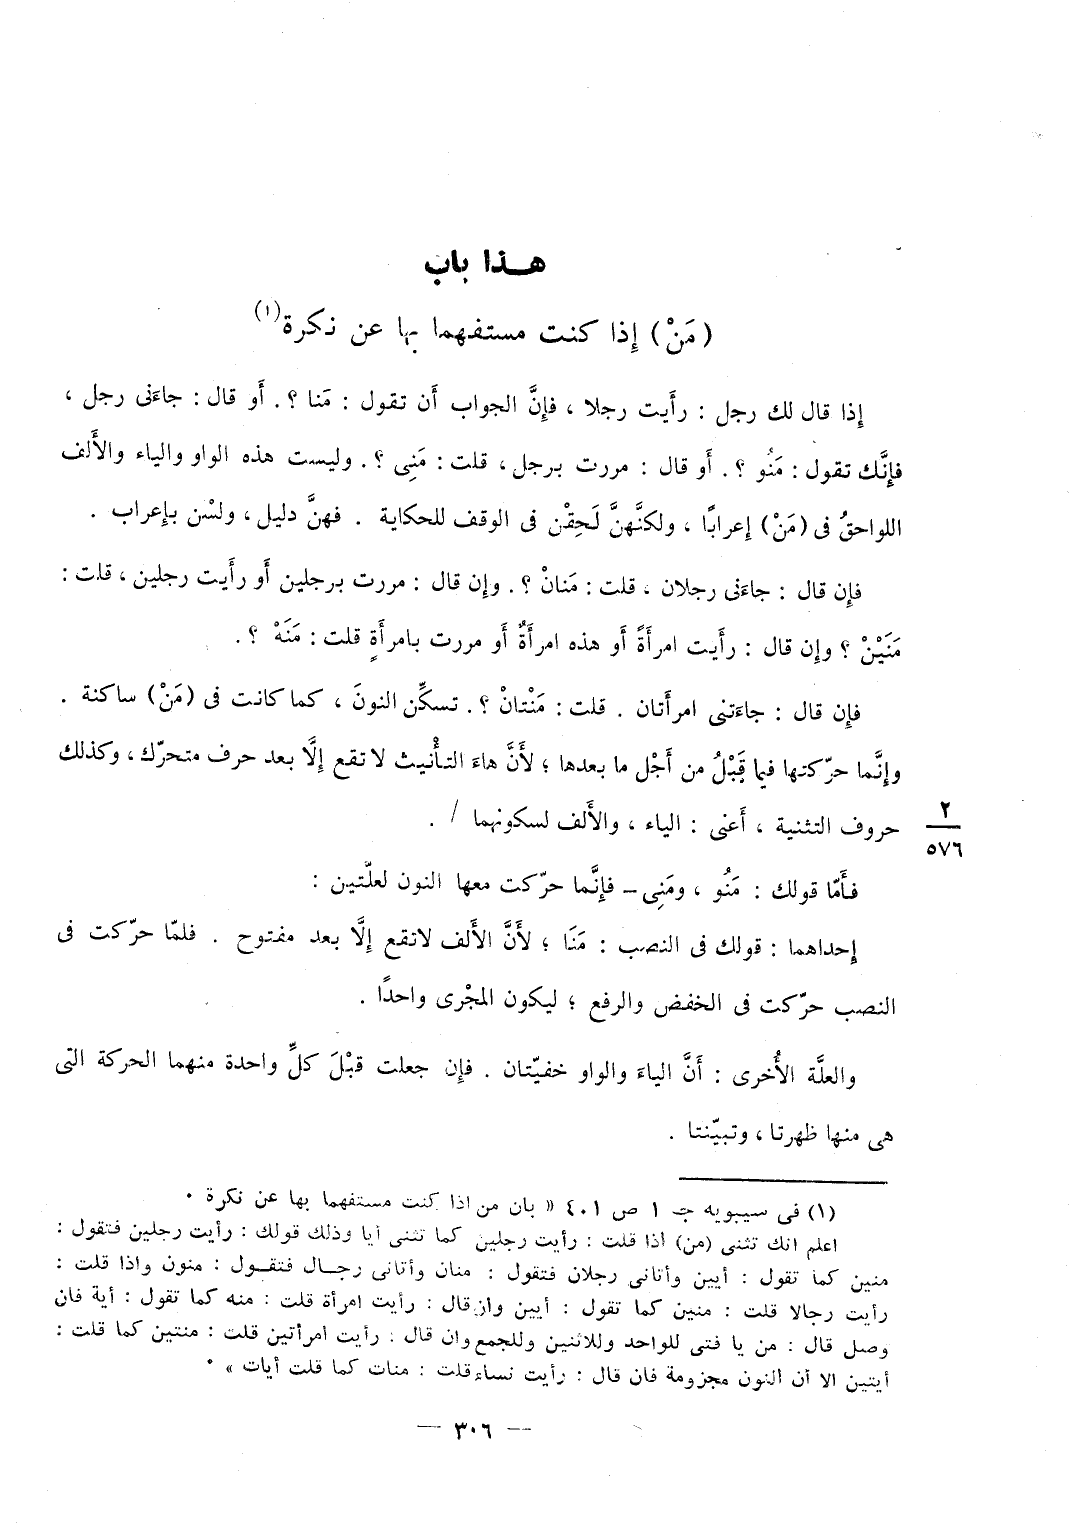 هــذا باب
( مَنْ ) إذا كنت مستفهما بها عن نكرة(١)
إذا قال لك رجل : رأَيت رجلا ، فإِنَّ الجواب أَن تقول : مَنا ؟ . أَو قال : جاءَنى رجل ،
فإِنَّك تقول : مَنُو ؟ . أَو قال : مررت برجل ، قلت : مَنِى ؟ . وليست هذه الواو والياء والأَلف
اللواحقُ فى (مَنْ) إعرابًا ، ولكنَّهنَّ لَحِقْن فى الوقف للحكاية . فهنَّ دليل ، ولسْن بإعراب .
فإن قال : جاءَنى رجلان ، قلت : مَنانْ ؟ . وإن قال : مررت برجلين أَو رأَيت رجلين ، قلت :
مَنَيْنْ ؟ وإن قال : رأَيت امرأَةً أَو هذه امرأَةٌ أَو مررت بامرأَةٍ قلت : مَنَهْ ؟ .
فإن قال : جاءَتنى امرأَتان . قلت : مَنْتانْ ؟ . تسكِّن النونَ ، كما كانت فى (مَنْ) ساكنة .
وإنَّما حرّكتها فيما قَبْلُ من أَجْل ما بعدها ؛ لأَنَّ هاءَ التأْنيث لا تقع إلَّا بعد حرف متحرّك ، وكذلك
حروف التثنية ، أَعنى : الياء ، والأَلف لسكونهما / .
٢
٥٧٦
فأَمّا قولك : مَنُو ، ومَنِى – فإنَّما حرّكت معها النون لعلّتين :
إحداهما : قولك فى النصب : مَنَا ؛ لأَنَّ الأَلف لاتقع إلَّا بعد مفتوح . فلمّا حرّكت فى
النصب حرّكت فى الخفض والرفع ؛ ليكون المجْرى واحدًا .
والعلَّة الأُخرى : أَنَّ الياءَ والواو خفيّتان . فإن جعلت قبْلَ كلِّ واحدة منهما الحركة التى
هى منها ظهرتا ، وتبيّنتا .
(١) فى سيبويه جـ ١ ص ٤٠١ « بان من اذا كنت مستفهما بها عن نكرة ٠
اعلم انك تثنى (من) اذا قلت : رأيت رجلين كما تثنى أيا وذلك قولك : رأيت رجلين فتقول :
منين كما تقول : أيين وأتانى رجلان فتقول : منان وأتانى رجــال فتقــول : منون واذا قلت :
رأيت رجالا قلت : منين كما تقول : أيين وان قال : رأيت امرأة قلت : منه كما تقول : أية فان
وصل قال : من يا فتى للواحد وللاثنين وللجمع وان قال : رأيت امرأتين قلت : منتين كما قلت :
أيتين الا أن النون مجزومة فان قال : رأيت نساء قلت : منات كما قلت أيات » ٠
— ٣٠٦ —